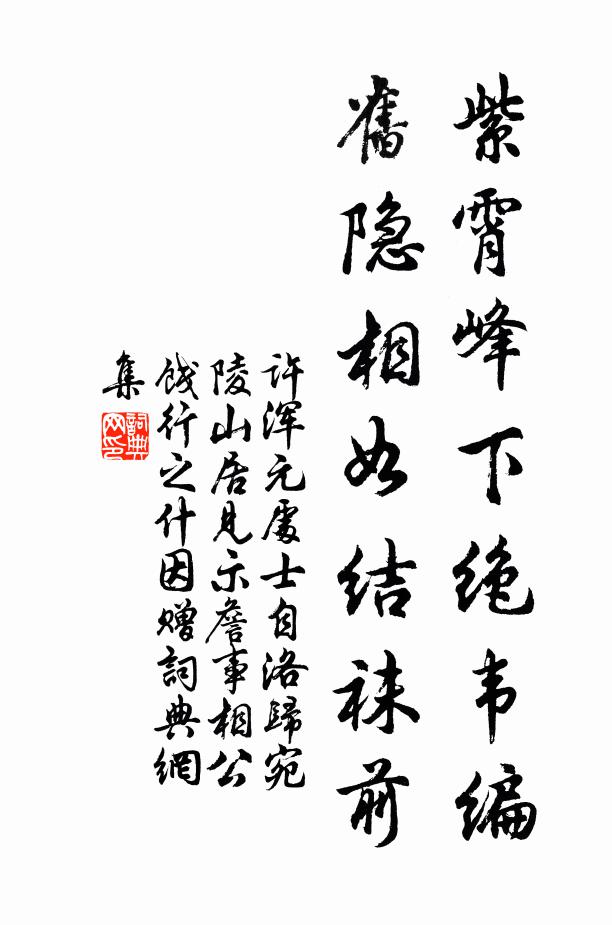 紫霄峰下绝韦编
舊隐相如结袜前
许浑元處士自洛歸宛
陵山居見示詹事相公
餞行之什因赠詞典網
集
詞典网印